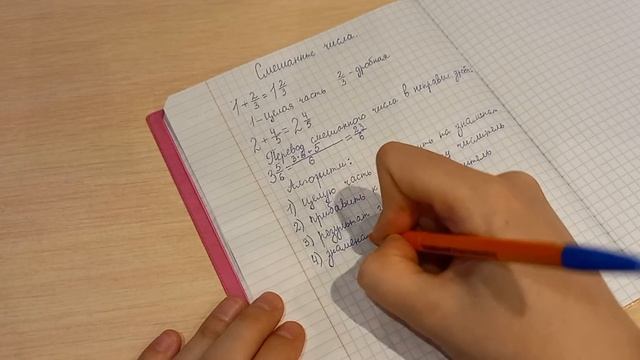 Смешанные числа.
1 + 2/3 = 1 2/3
1 - целая часть 2/3 - дробная
2 + 4/5 = 2 4/5
Перевод смешанного числа в неправил. дробь:
3 5/6 = 3·6+5/6 = 23/6
Алгоритм:
1) Целую часть на знаменат
2) прибавить к числитель
3) результат
4) знаменат